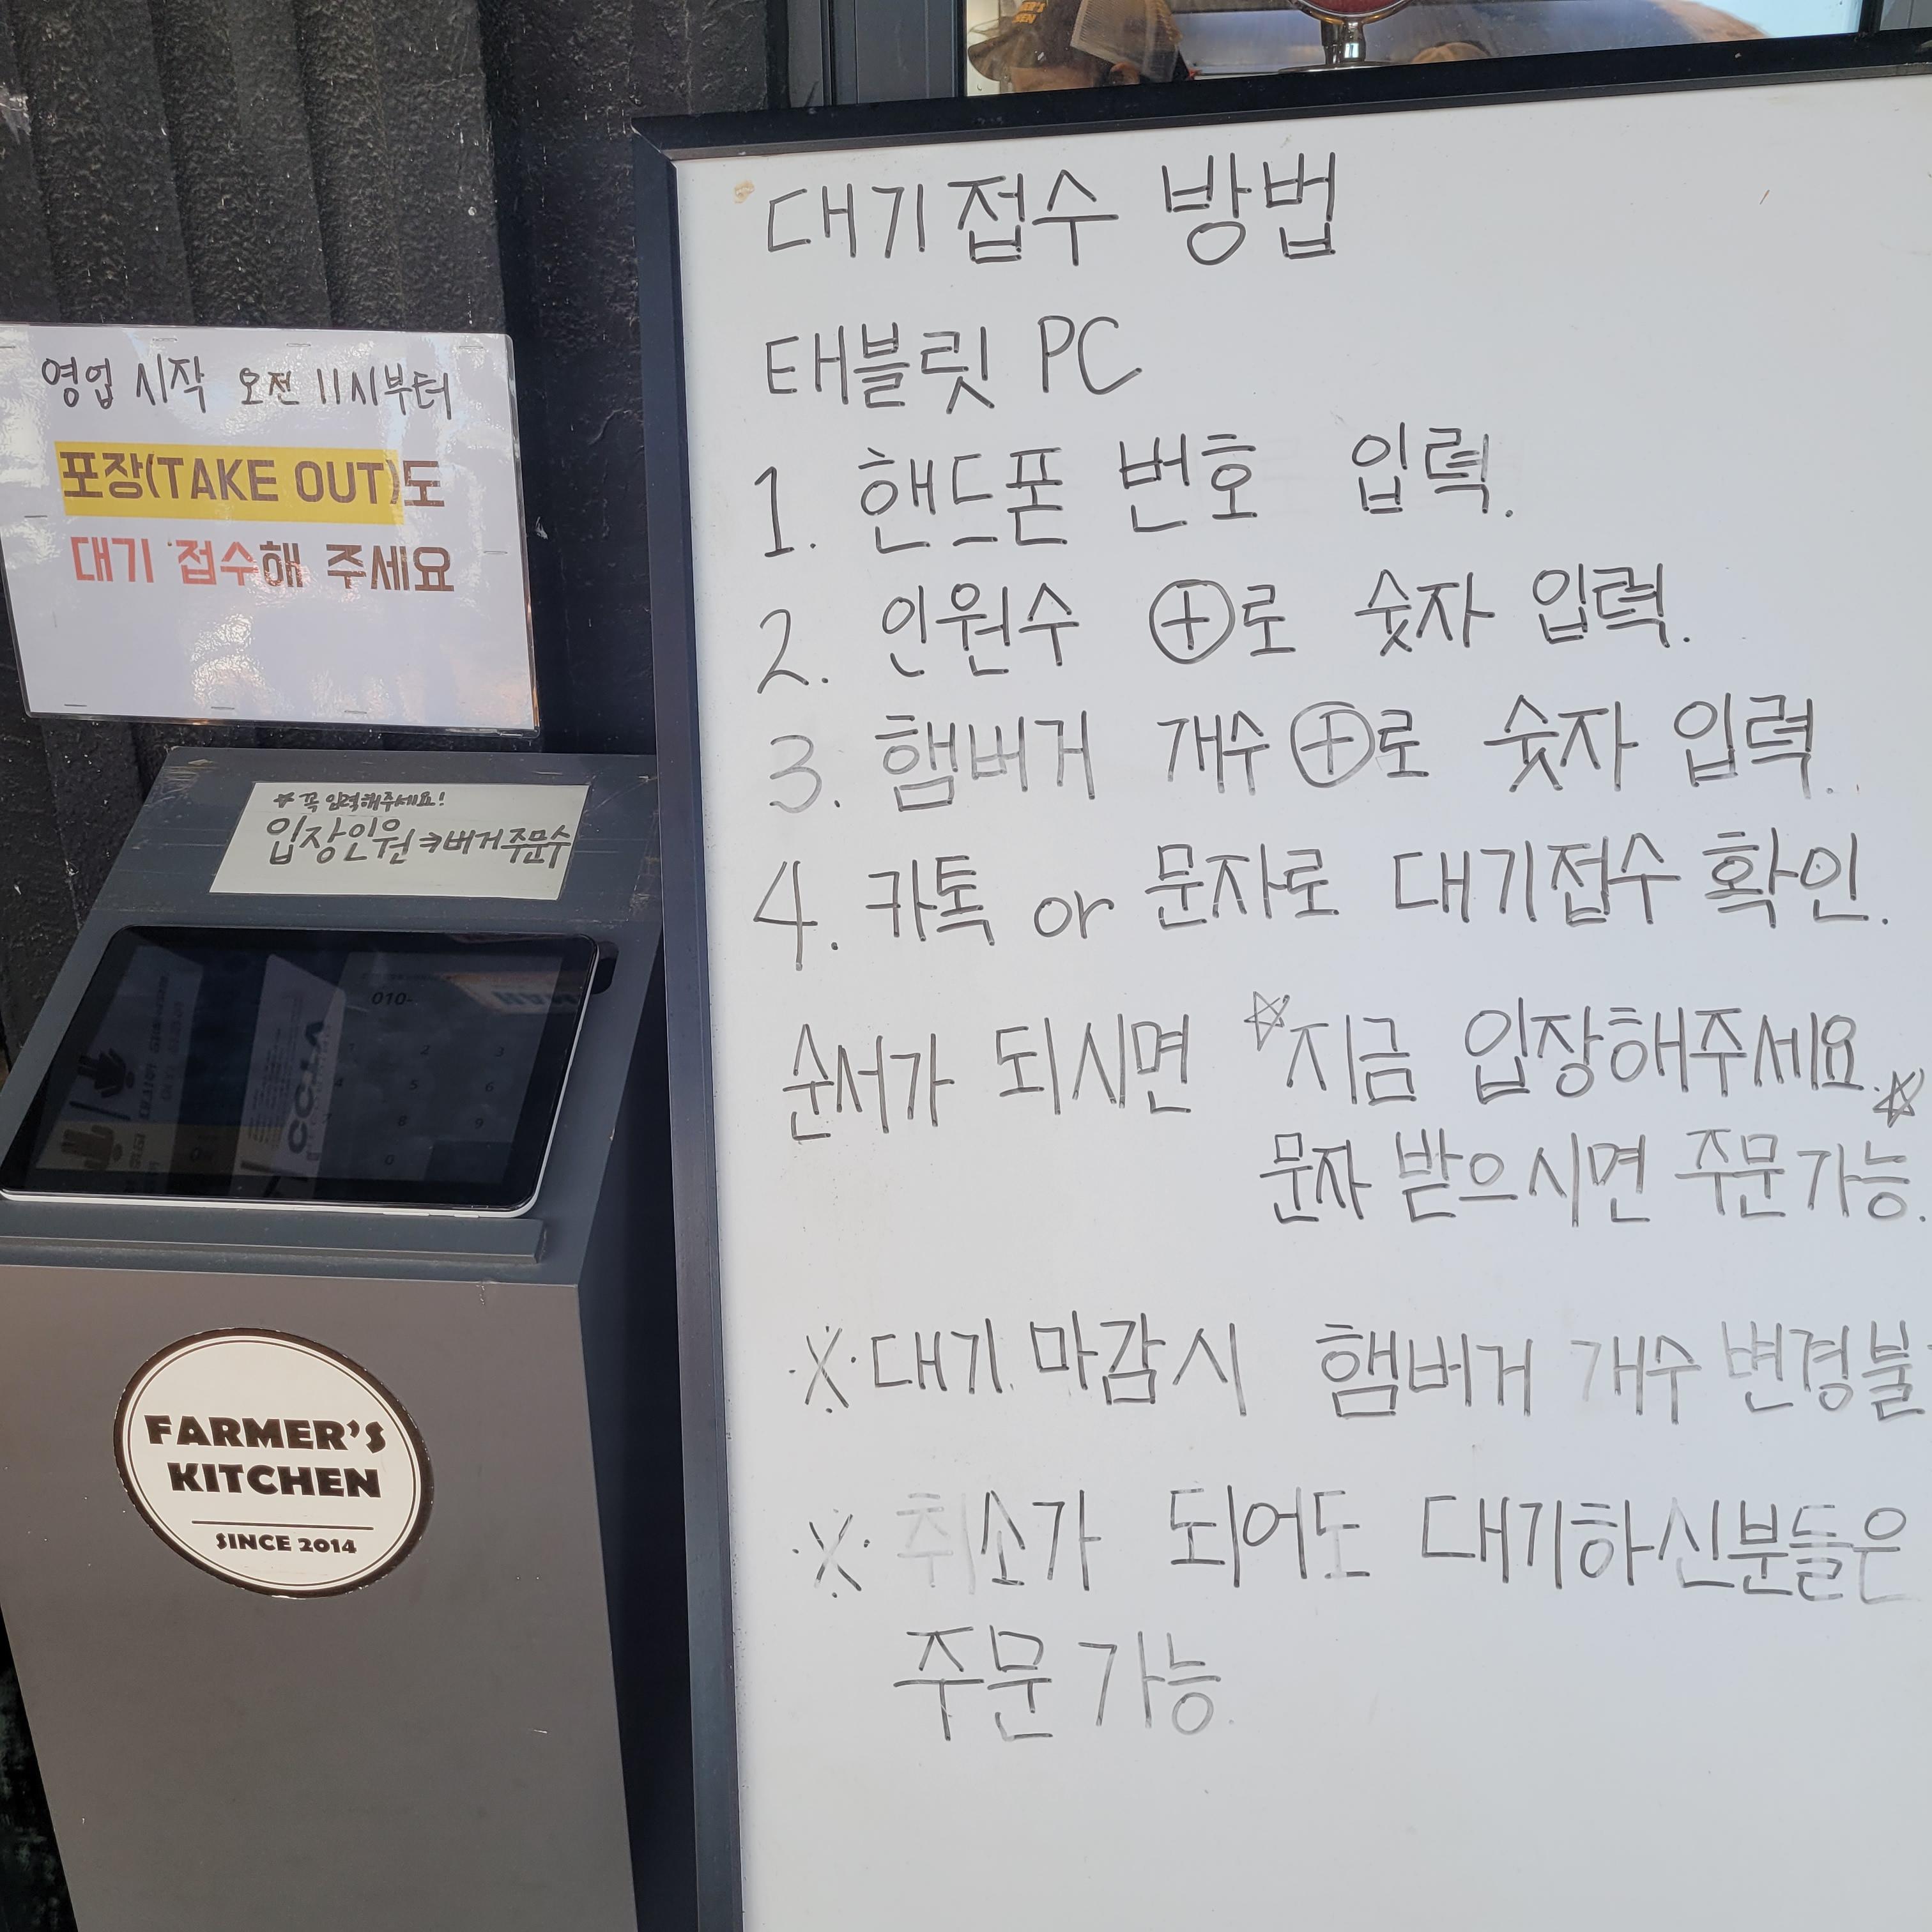 영업 시작 오전 11시부터
포장(TAKE OUT)도
대기 접수해 주세요
☆ 꼭 입력해주세요!
입장인원 버거주문수
010-
1 2 3
4 5 6
8 9
0
FARMER'S
KITCHEN
SINCE 2014
대기접수 방법
태블릿 PC
1. 핸드폰 번호 입력.
2. 인원수 ⊕로 숫자 입력.
3. 햄버거 개수 ⊕로 숫자 입력.
4. 카톡 or 문자로 대기접수 확인.
순서가 되시면 ☆지금 입장해주세요.☆
문자 받으시면 주문가능.
※ 대기 마감시 햄버거 개수 변경불
※ 취소가 되어도 대기하신분들은
주문가능.